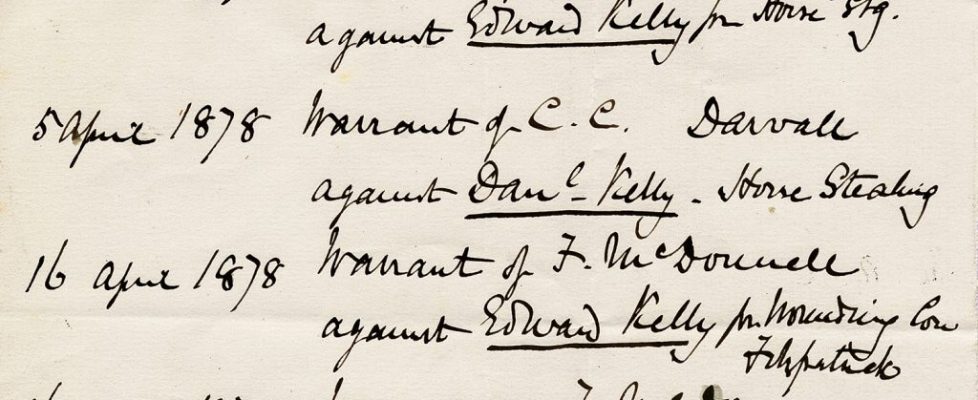 against Edward Kelly for Horse Stg.
5 April 1878 Warrant of C. C. Darvall
against Danl - Kelly - Horse Stealing
16 April 1878 Warrant of F. McDonnell
against Edward Kelly for Wounding Con
Fitzpatrick